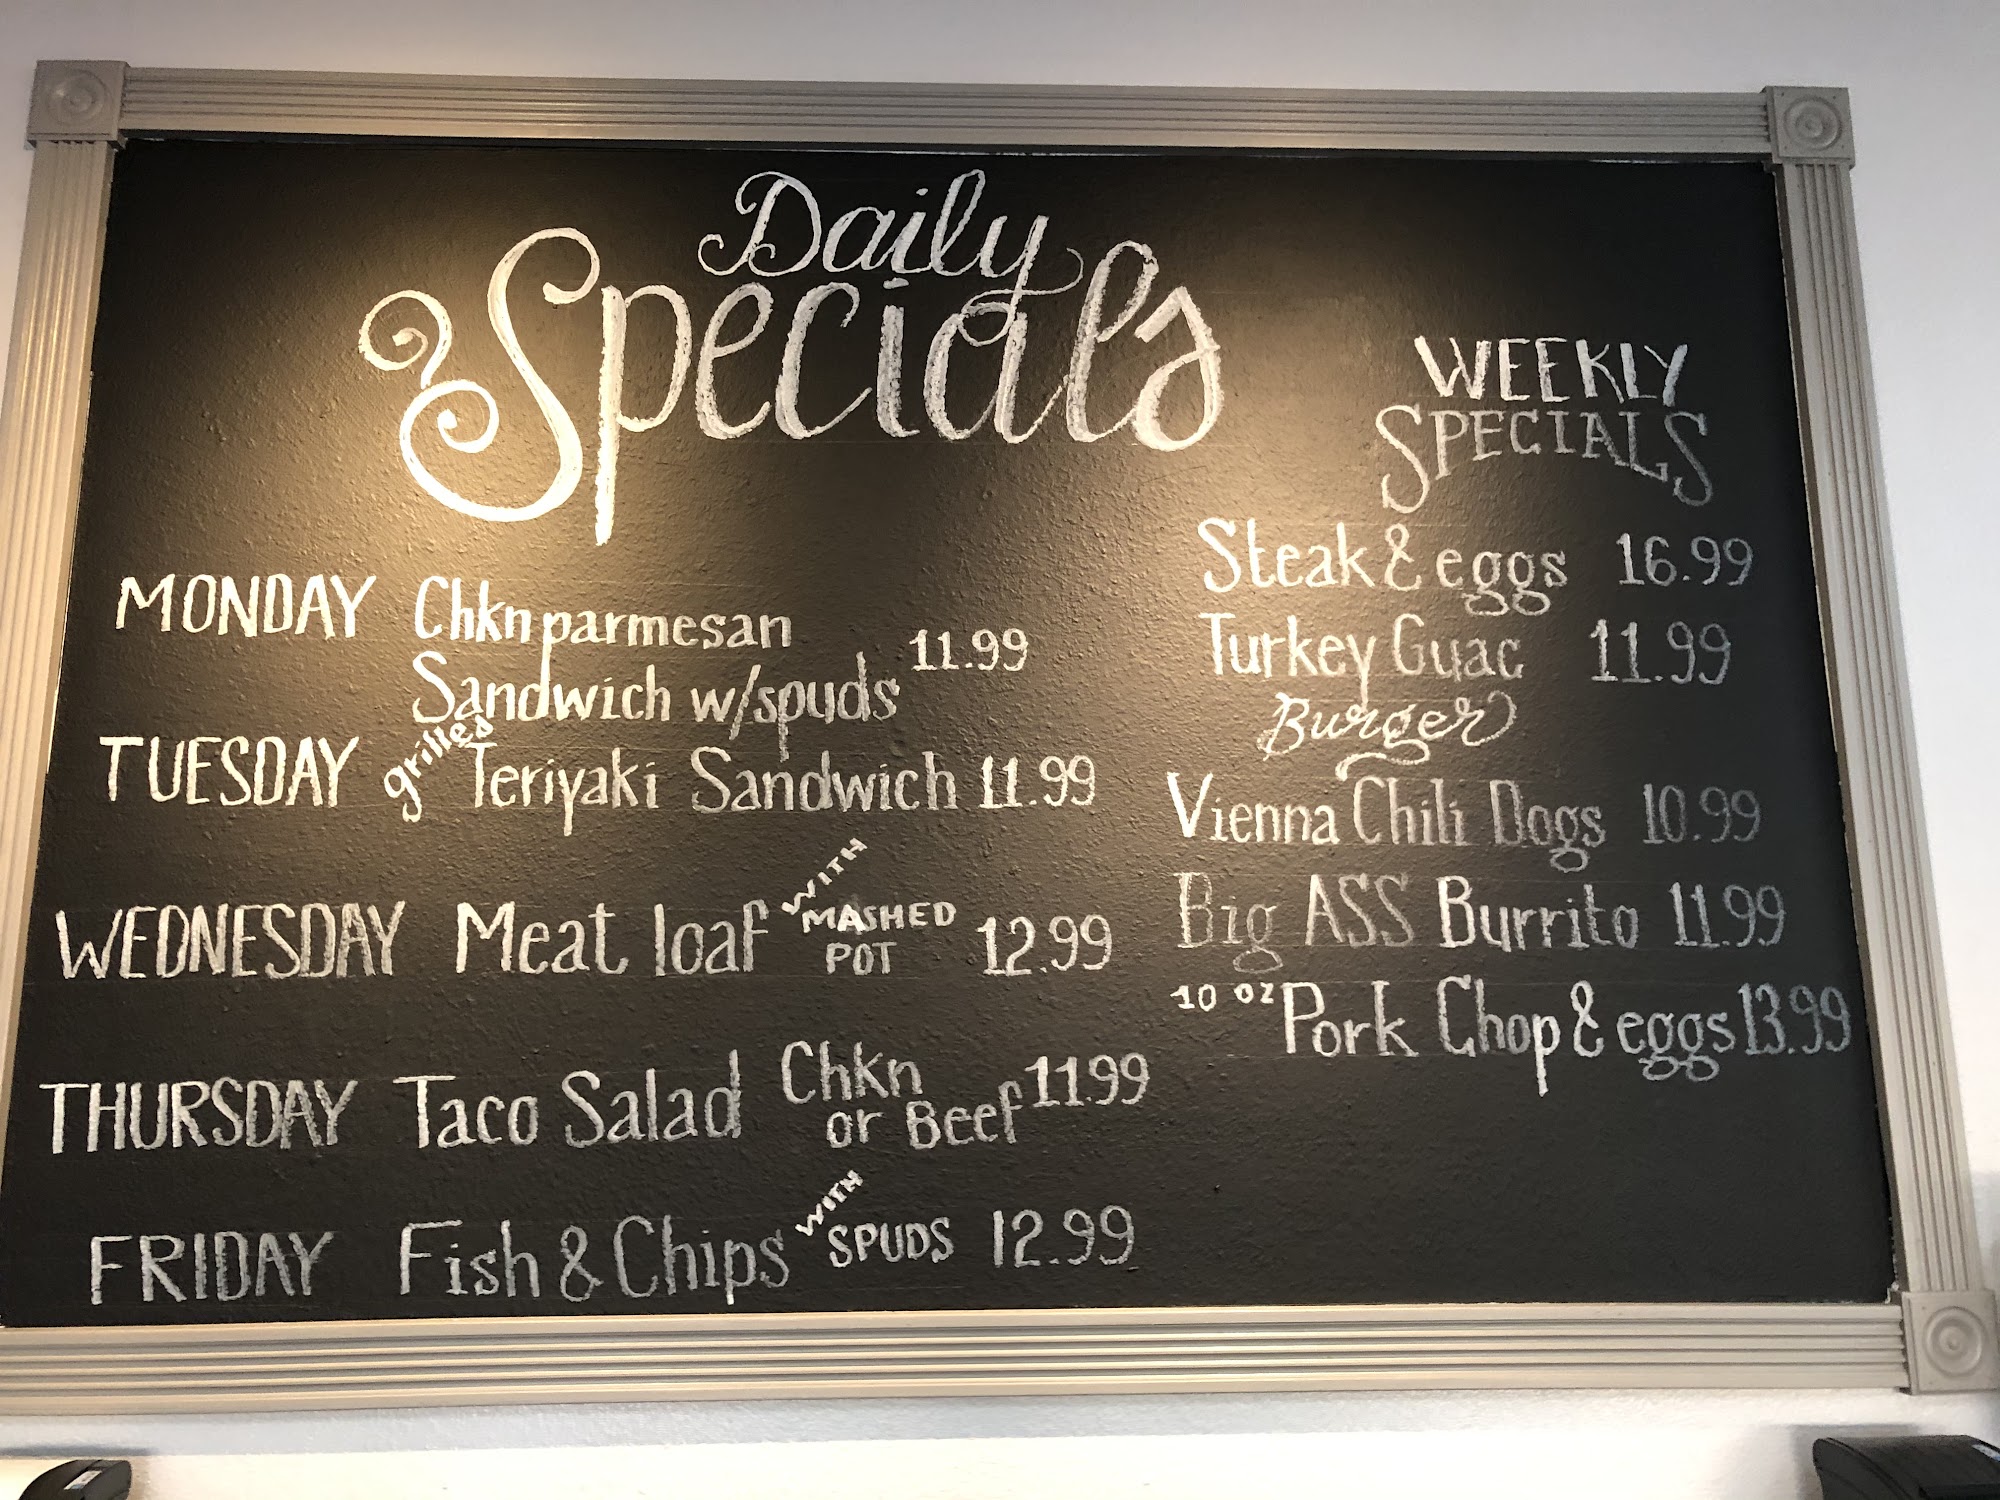 Daily
Specials
MONDAY Chkn parmesan
Sandwich w/spuds 11.99
TUESDAY grilled Teriyaki Sandwich 11.99
WEDNESDAY Meat loaf WITH MASHED POT 12.99
THURSDAY Taco Salad Chkn or Beef 11.99
FRIDAY Fish & Chips WITH SPUDS 12.99
WEEKLY
SPECIALS
Steak & eggs 16.99
Turkey Guac 11.99
Burger
Vienna Chili Dogs 10.99
Big ASS Burrito 11.99
10 OZ Pork Chop & eggs 13.99